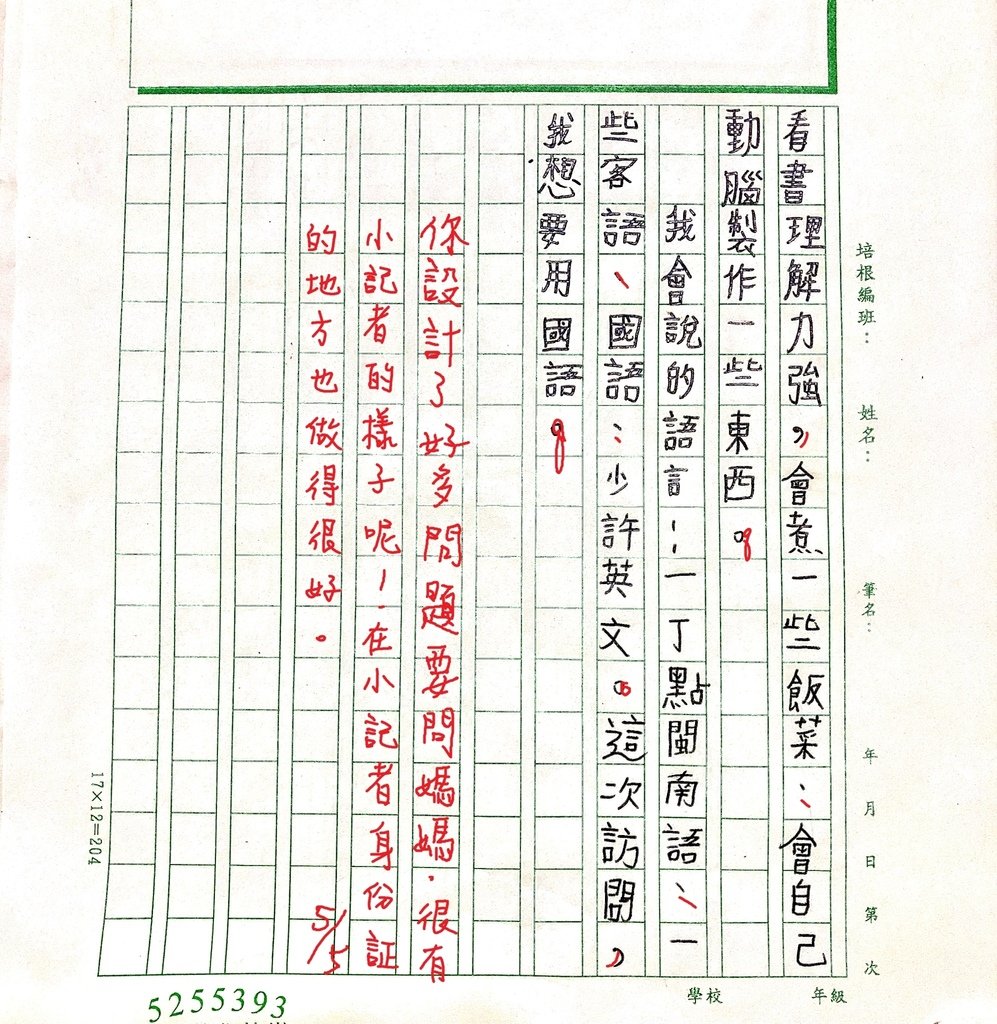 培根編班：　姓名：　筆名：　年　月　日　第　次
看書理解力強，會煮一些飯菜、會自己
動腦製作一些東西。
我會說的語言：一丁點閩南語、一
些客語、國語、少許英文。這次訪問，
我想要用國語。
你設計了好多問題要問媽媽．很有
小記者的樣子呢！．在小記者身份証
的地方也做得很好。
5/5
17×12=204
學校　年級
5255393